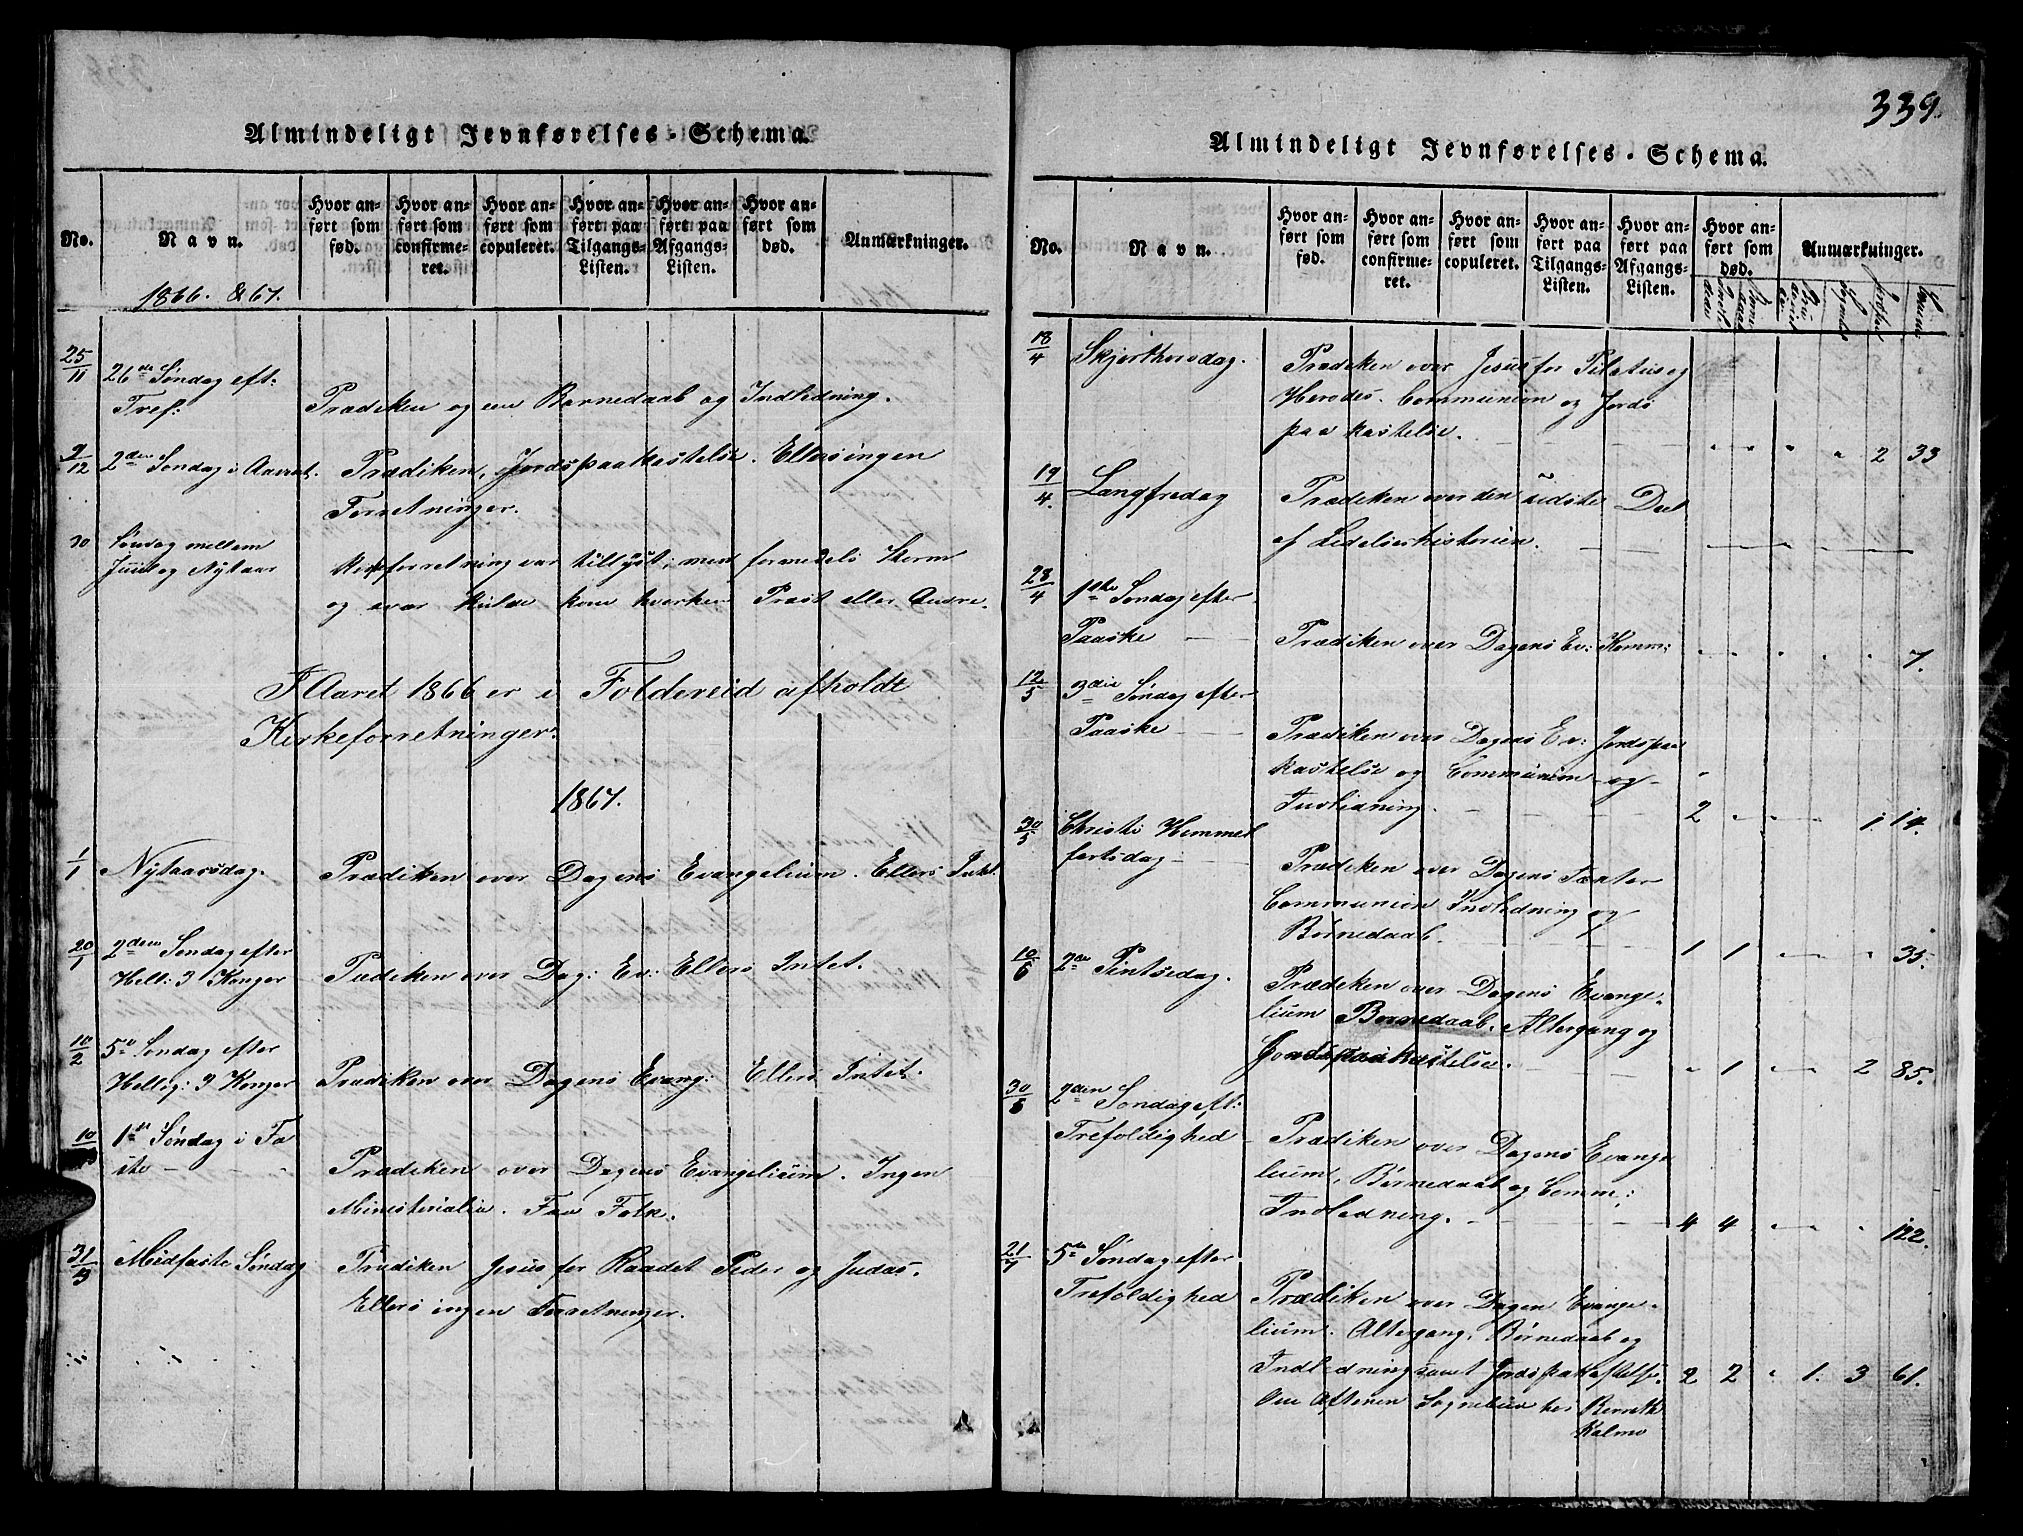 339.
Almindeligt Jevnførelses-Schema.
No.
Navn.
Hvor anført som fød.
Hvor anført som confirmeret.
Hvor anført som copuleret.
Hvor anført paa Tilgangs-Listen.
Hvor anført paa Afgangs-Listen.
Hvor anført som død.
Anmærkninger.
1866. & 67.
25/11 26de Søndag eft:
Tref: Prædiken og en Barnedaab og Indledning.
9/12 2den Søndag i Advent. Prædiken, Jordspaakastelse. Ellers ingen
Forretninger.
30 Søndag mellem
Juul og Nytaar
Kirkforretning var tillyst, men formedels Storm
og svær Kulde kom hverken Præst eller Andre.
I Aaret 1866 er i Foldereid afholdt
Kirkeforretninger.
1867.
1/1 Nytaarsdag. Prædiken over Dagens Evangelium. Ellers Intet.
20/1 2den Søndag efter
Hell: 3 Konger Prædiken over Dag: Ev: Ellers Intet.
10/2 5te Søndag efter
Hellig: 3 Konger Prædiken over Dagens Evang: Ellers Intet.
10/3 1ste Søndag i Fa
ste Prædiken over Dagens Evangelium. Ingen
Ministerialia. Faa Folk.
31/3 Midfaste Søndag Prædiken Jesus for Raadet Peder og Judas.
Ellers ingen Forretninger.
Almindeligt Jevnførelses-Schema.
No.
Navn.
Hvor anført som fød.
Hvor anført som confirmeret.
Hvor anført som copuleret.
Hvor anført paa Tilgangs-Listen.
Hvor anført paa Afgangs-Listen.
Hvor anført som død.
Anmærkninger.
18/4 Skjærthorsdag. Prædiken over Jesus for Pilatus og
Herodes. Communion og Jords
paakastelse. " " " " 2 33
19/4. Langfredag Prædiken over den sidste Deel
af Lidelseshistorien.
28/4 1ste Søndag efter
Paaske Prædiken over Dagens Ev: Komm: " " " " " 7.
12/5 3die Søndag efter
Paaske Prædiken over Dagens Ev: Jordspaa
kastelse og Communion og
Indledning. 2 " " " 1. 14.
30/5 Christi Himmel
fartsdag Prædiken over Dagens Texter
Communion Indledning og
Barnedaab. 1 1 " " " 35.
10/6 2den Pintsedag. Prædiken over Dagens Evange-
lium Barnedaab. Altergang og
Jordspaakastelse. " 1 " " 2 85.
30/6 2den Søndag eft:
Trefoldighed Prædiken over Dagens Evange
lium, Barnedaab og Comm:
Indledning. 4 4 " " " 122.
21/7 5te Søndag efter
Trefoldighed Prædiken over Dagen Evange-
lium. Altergang, Barnedaab og
Indledning samt Jordspakastelse. 2 2 " 1. 3 61.
Om Aftenen Sognebud hos Berreth
Kalmo